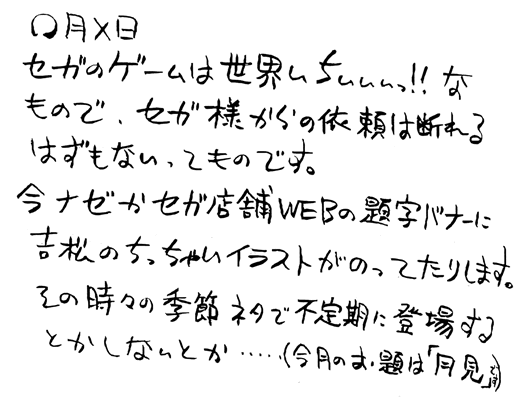 ○月×日
セガのゲームは世界いちぃぃぃっ!!な
もので、セガ様からの依頼は断れる
はずもないってものです。
今ナゼかセガ店舗WEBの題字バナーに
吉松のちっちゃいイラストがのってたりします。
その時々の季節ネタで不定期に登場する
とかしないとか……(今月のお題は「月見」です)